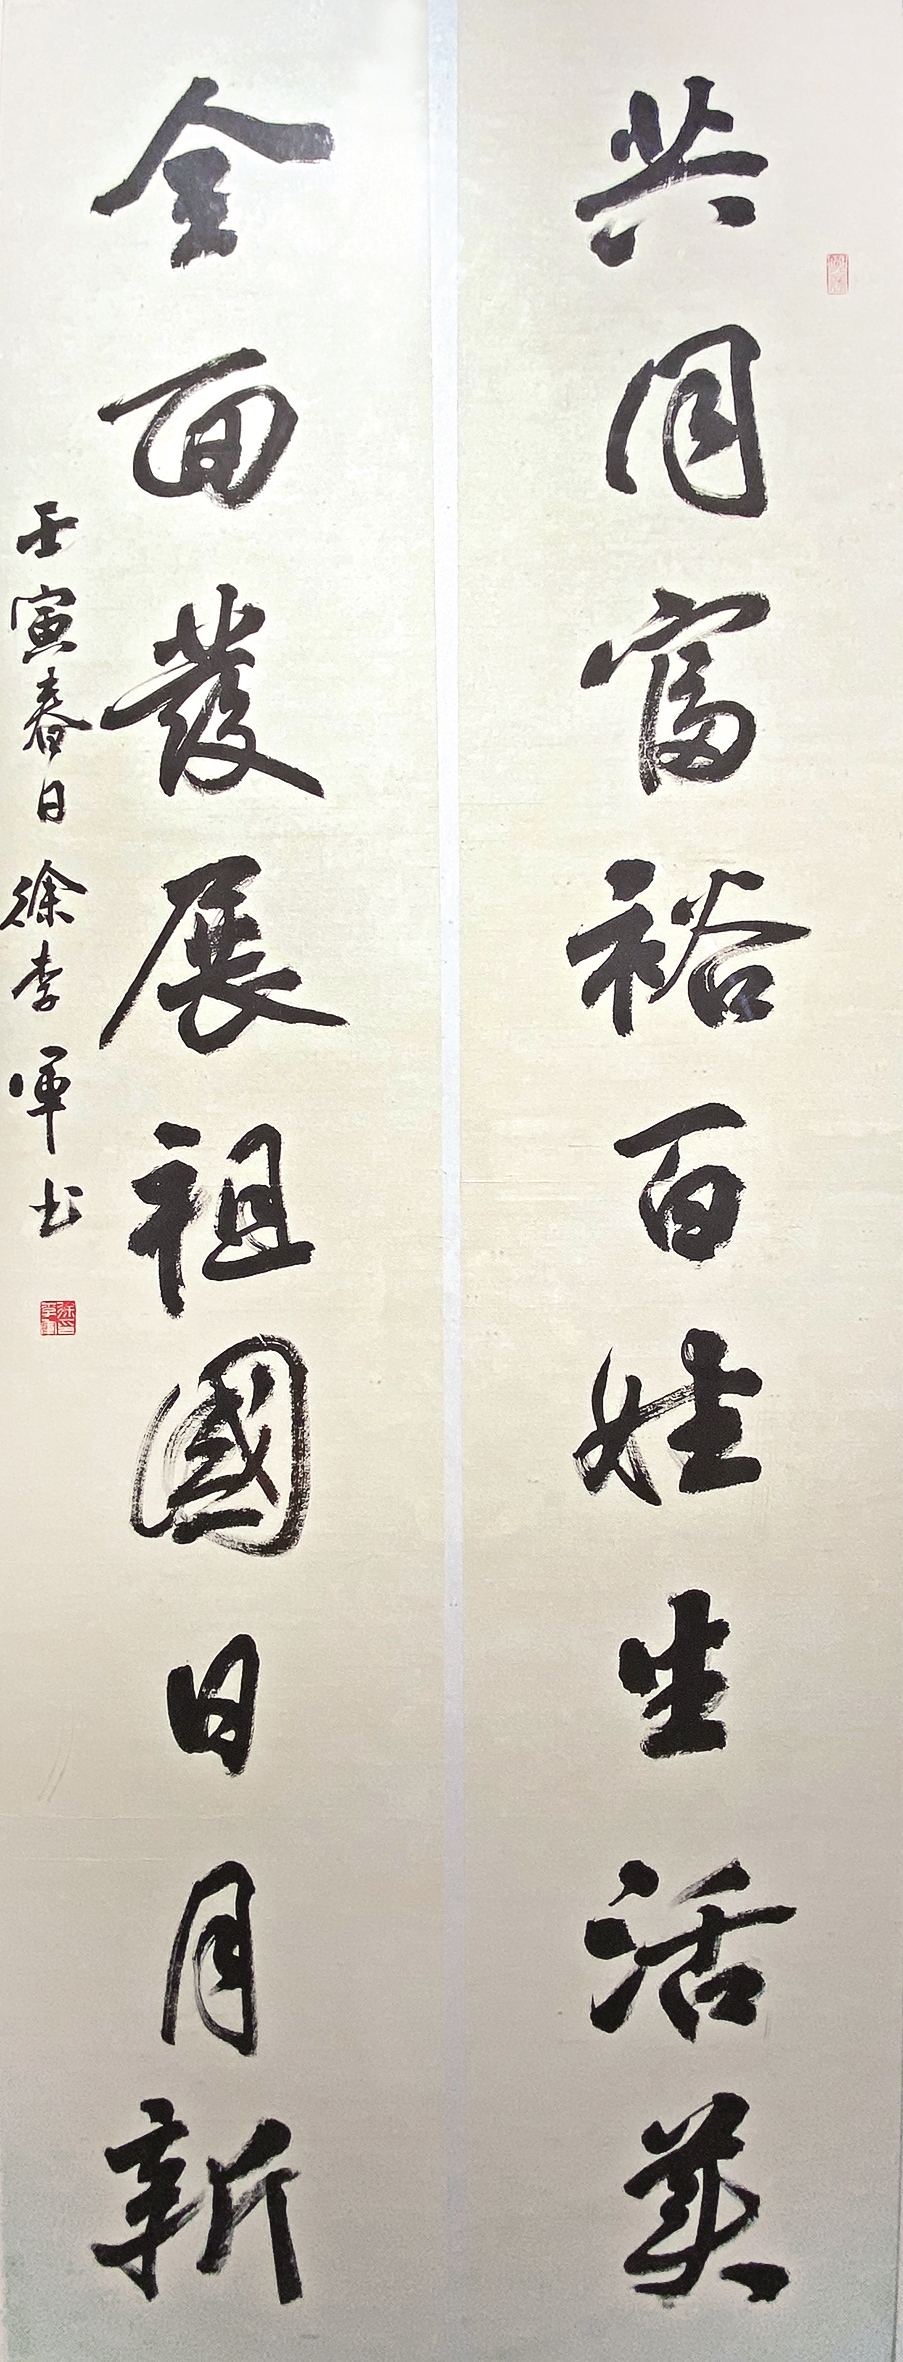 共同富裕百姓生活美
全面發展祖國日月新
壬寅春日徐李軍书